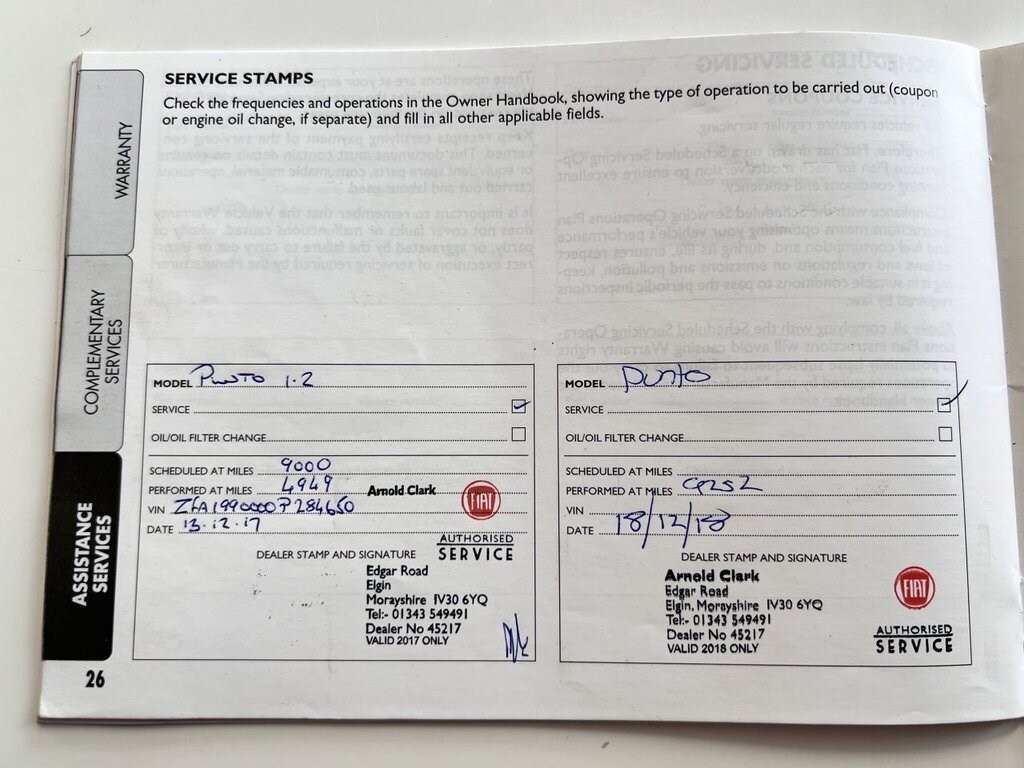 SERVICE STAMPS
Check the frequencies and operations in the Owner Handbook, showing the type of operation to be carried out (coupon
or engine oil change, if separate) and fill in all other applicable fields.
WARRANTY
COMPLEMENTARY
SERVICES
ASSISTANCE
SERVICES
MODEL Punto 1.2
SERVICE
OIL/OIL FILTER CHANGE
SCHEDULED AT MILES 9000
PERFORMED AT MILES 4949
VIN ZFA1990000P284650
DATE 13.12.17
Arnold Clark
FIAT
AUTHORISED
SERVICE
DEALER STAMP AND SIGNATURE
Edgar Road
Elgin
Morayshire IV30 6YQ
Tel:- 01343 549491
Dealer No 45217
VALID 2017 ONLY
MODEL Punto
SERVICE
OIL/OIL FILTER CHANGE
SCHEDULED AT MILES
PERFORMED AT MILES
VIN
DATE 18/12/18
DEALER STAMP AND SIGNATURE
Arnold Clark
Edgar Road
Elgin, Morayshire IV30 6YQ
Tel:- 01343 549491
Dealer No 45217
VALID 2018 ONLY
FIAT
AUTHORISED
SERVICE
26